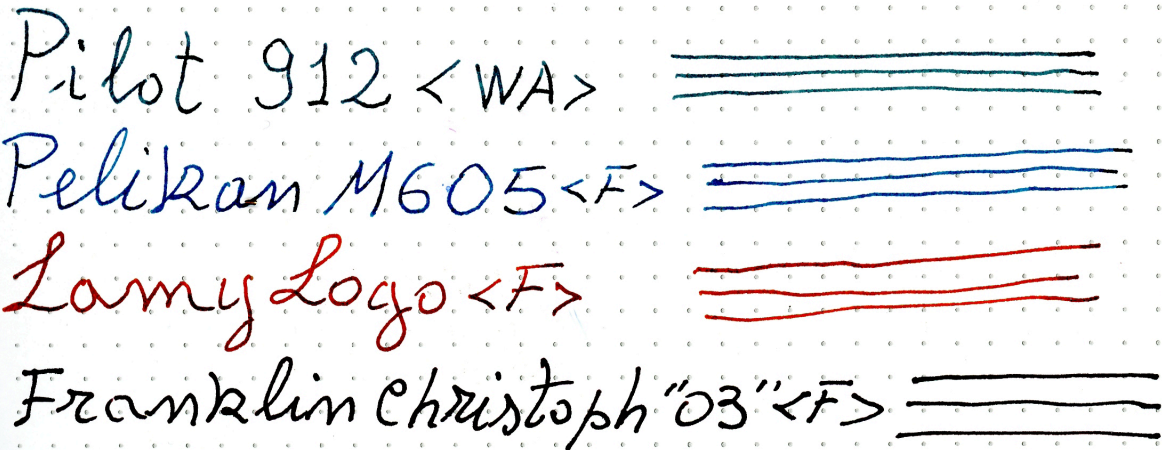 Pilot 912 <WA>
Pelikan M605 <F>
Lamy Logo <F>
Franklin Christoph "03" <F>